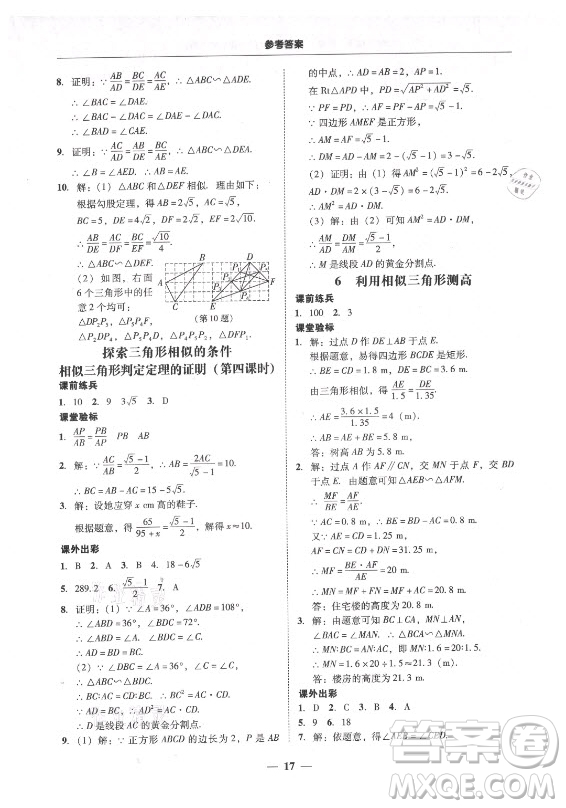 参考答案
8. 证明：∵ AB/AD = BC/DE = AC/AE，∴ △ABC∽△ADE.
∴ ∠BAC = ∠DAE.
∴ ∠BAD = ∠CAE.
9. 证明：∵ AB/AD = BC/DE = AC/AE，∴ △ABC∽△DEA.
∴ ∠B = ∠AED. ∴ AB = AE.
10. 解：（1）△ABC 和△DEF 相似. 理由如下：
根据勾股定理，得 AB = 2√5，AC = √5，
BC = 5，DE = 4√2，DF = 2√2，EF = 2√10.
∴ AB/DE = AC/DF = BC/EF = √10/4.
∴ △ABC∽△DEF.
（2）如图，右面
6 个三角形中的任
意 2 个均可：
△DP₂P₅，
△P₅P₄F，
（第 10 题）
探索三角形相似的条件
相似三角形判定定理的证明（第四课时）
课前练兵
1. 10 2. 9 3√5 3. D
课堂验标
1. AP/AB = PB/AP PB AB
2. 解：∵ AC/AB = (√5－1)/2，∴ AB = 2AC/(√5－1) = 2.
∴ BC = AB－AC = 3－√5.
3. 解：设她应穿 x cm 高的鞋子.
根据题意，得 65/(95＋x) = (√5－1)/2，解得 x≈10.
课外出彩
1. D 2. A 3. B 4. 18－6√5
5. 289.2 6. (√5－1)/2 7. A
8. 证明：（1）∵ ∠A = 36°，∠C = 72°，
∴ ∠ABC = 72°，∠ADB = 108°.
∴ ∠ABD = 36°. ∴ AD = BD.
（2）∵ ∠A = ∠DBC = 36°，∠C = ∠C，
∴ △ABC∽△BDC.
∴ BC∶AC = CD∶BC. ∴ BC² = AC·CD.
∵ AD = BD = BC，∴ AD² = AC·CD.
∴ D 是线段 AC 的黄金分割点.
9.（1）解：∵ 正方形 ABCD 的边长为 2，P 是 AB
的中点，∴ AB = AD = 2，AP = 1.
在 Rt△APD 中，PD = √(AP²＋AD²) = √5.
∵ PF = PD，∴ AF = PF－AP = √5－1.
∵ 四边形 AMEF 是正方形，
∴ AM = AF = √5－1.
∴ MD = AD－AM = 3－√5.
（2）证明：由（1）得 AM² = (√5－1)² = 6－2√5，
AD·DM = 2×(3－√5) = 6－2√5，
∴ AM² = AD·DM.
（3）解：由（2）可知 AM² = AD·DM，
∴ AM/AD = DM/AM = (√5－1)/2.
∴ M 是线段 AD 的黄金分割点.
6 利用相似三角形测高
课前练兵
1. 100 2. 3
课堂验标
1. 解：过点 D 作 DE⊥AB 于点 E.
根据题意，易得四边形 BCDE 是矩形.
∴ DE = BC = 3.6 m，BE = CD = 1.8 m.
由同一时刻物高与影长成比例，得 AE/1.5 = DE/1.35.
由三角形相似，得 AE/1.5 = 3.6/1.35.
∴ AE = 3.6×1.5/1.35 = 4（m）.
∴ AB = AE＋BE = 5.8 m.
答：树高 AB 为 5.8 m.
2. 解：过点 A 作 AF∥CN，交 MN 于点 F，交
BD 于点 E. 由题意可证 △AEB∽△AFM.
∴ MF/BE = AF/AE.
∵ AC = 0.8 m，∴ NF = AC = 0.8 m.
∵ AE = CD = 1.25 m，EB = 0.8 m，
AF = CN = 31.25 m，
∴ MF = BE·AF/AE = 20 m.
∴ MN = 20.8 m.
答：住宅楼的高度为 20.8 m.
3. 解：由题意可知 BC⊥CA，MN⊥AN，
∠BAC = ∠MAN，∴ △BCA∽△MNA.
∴ MN∶BC = AN∶AC.
∴ MN∶1.6 = 20∶1.5.
∴ MN = 1.6×20÷1.5≈21.3（m）.
答：楼房的高度为 21.3 m.
课外出彩
1. C 2. B 3. B 4. A
5. 9 6. 18
17
答案圈